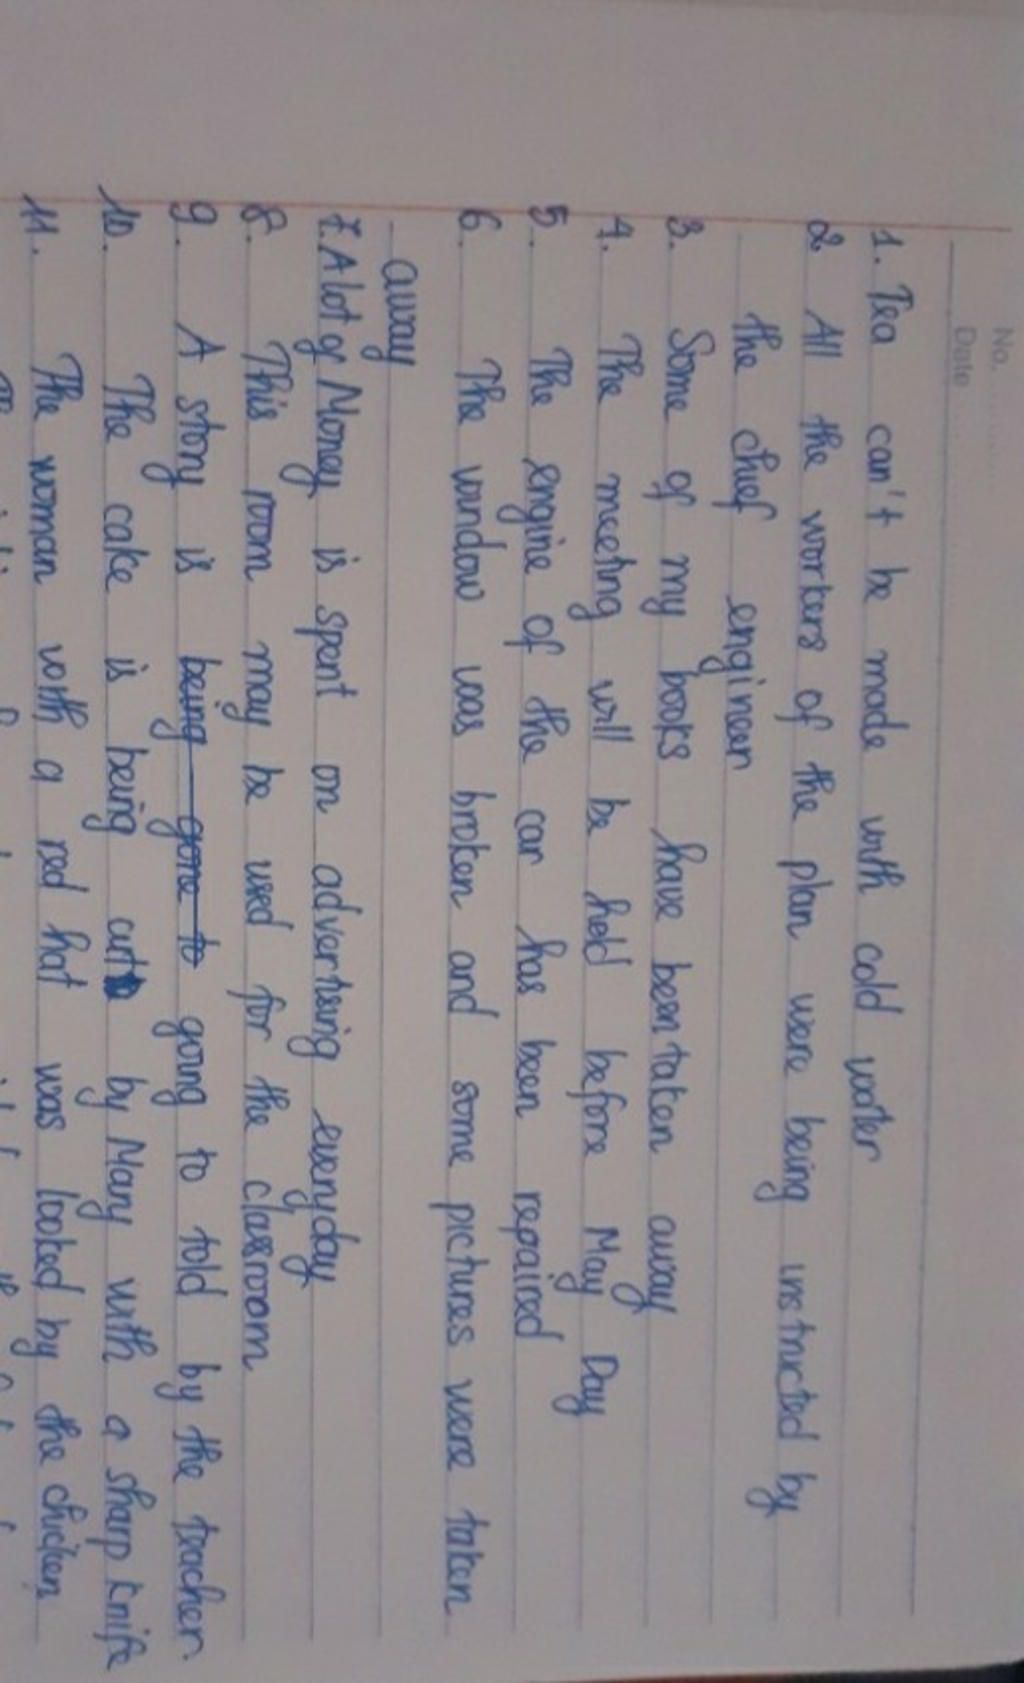 No.
Date
1. Tea can't be made with cold water
2. All the workers of the plan were being instructed by
the chief engineer
3. Some of my books have been taken away
4. The meeting will be held before May Day
5. The engine of the car has been repaired
6. The window was broken and some pictures were taken
away
7. A lot of Money is spent on advertising everyday
8. This room may be used for the classroom
9. A story is being gone to going to told by the teacher.
10. The cake is being cut by Mary with a sharp knife
11. The woman with a red hat was looked by the chicken